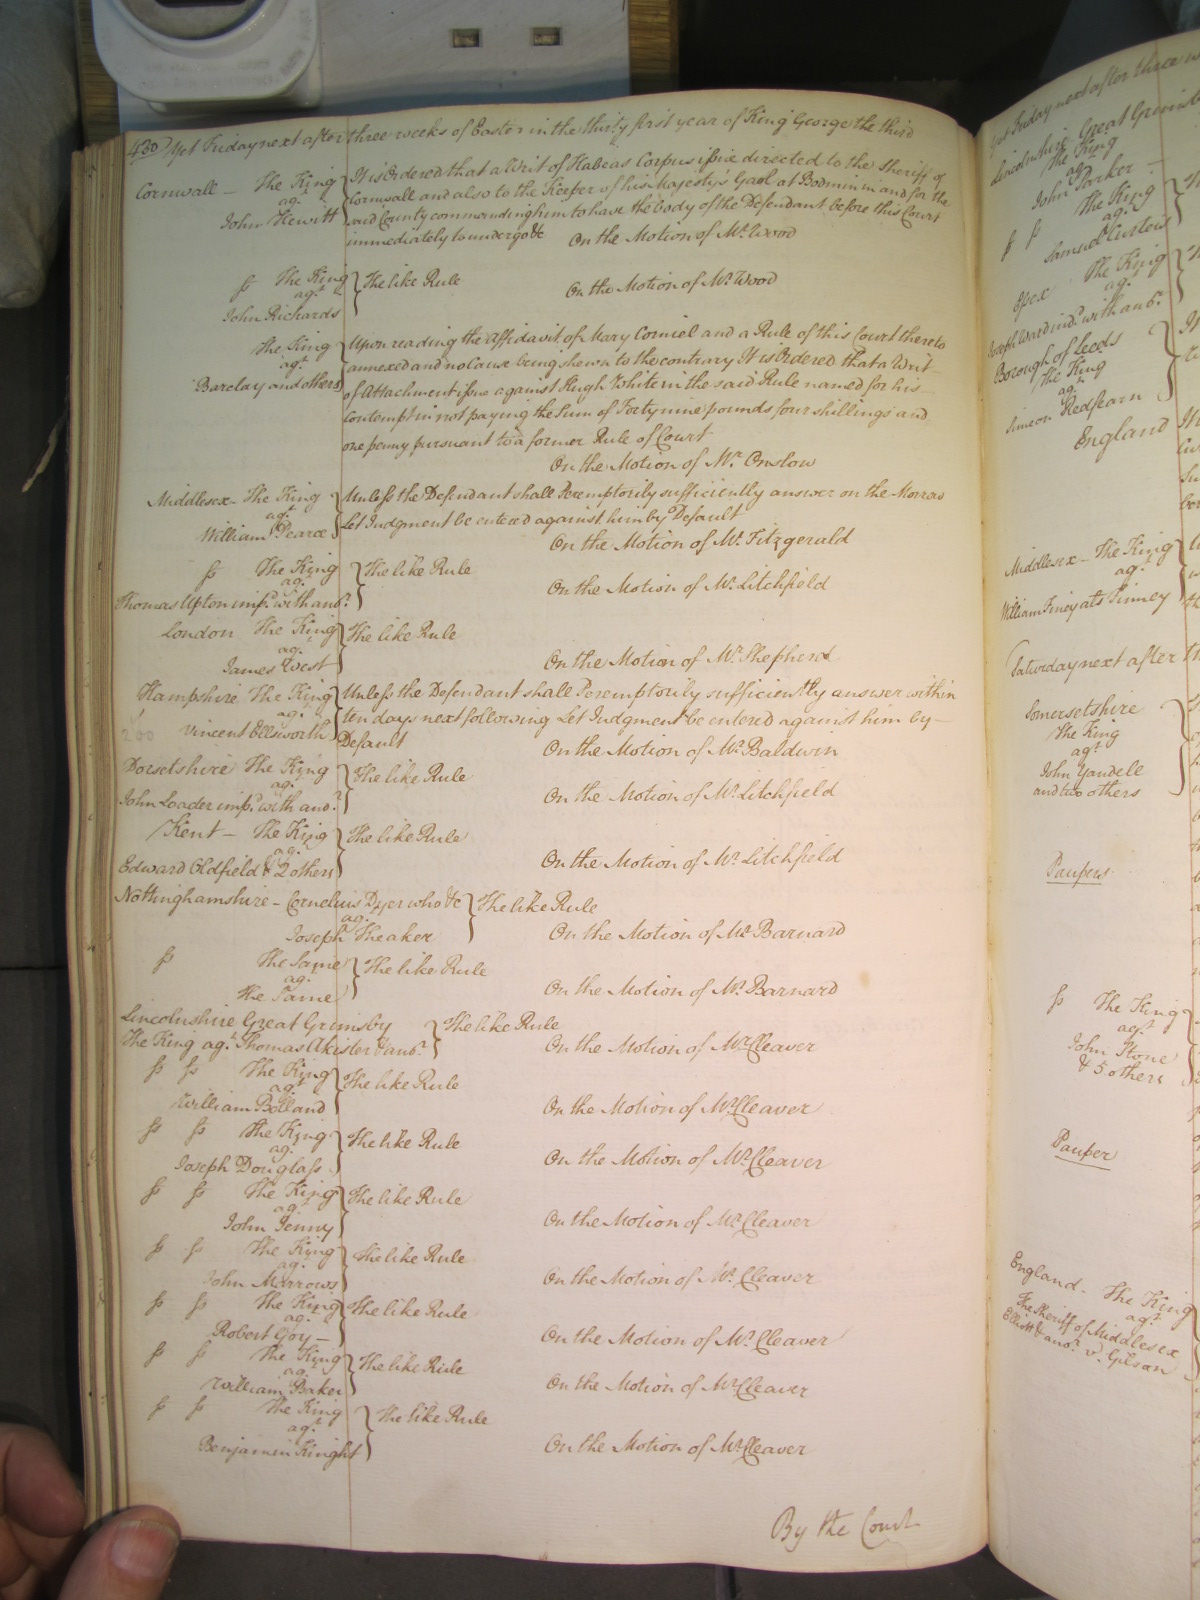 430 Yet Friday next after three weeks of Easter in the thirty first year of King George the third
Cornwall – The King
agt
John Hewitt
It is Ordered that a Writ of Habeas Corpus issue directed to the Sheriff of
Cornwall and also to the Keeper of his Majesty's Gaol at Bodmin in and for the
said County commanding him to have the body of the Defendant before this Court
immediately to undergo &c On the Motion of Mr. Wood
ss The King
agt
John Richards
The like Rule
On the Motion of Mr. Wood
The King
agt
Barclay and others
Upon reading the Affidavit of Mary Corniel and a Rule of this Court thereto
annexed and no Cause being shewn to the contrary It is Ordered that a Writ
of Attachment issue against Hugh White in the said Rule named for his
Contempt in not paying the Sum of Forty nine pounds four shillings and
one penny pursuant to a former Rule of Court
On the Motion of Mr. Onslow
Middlesex – The King
agt
William Pearce
Unless the Defendant shall Peremptorily sufficiently answer on the Morrow
Let Judgment be entered against him by Default
On the Motion of Mr. Fitzgerald
ss The King
agt
Thomas Upton imp.d with anor.
The like Rule
On the Motion of Mr. Litchfield
London The King
agt
James West
The like Rule
On the Motion of Mr. Shepherd
Hampshire The King
agt
Vincent Ellsworth
Unless the Defendant shall Peremptorily sufficiently answer within
ten days next following Let Judgment be entered against him by –
Default On the Motion of Mr. Baldwin
Dorsetshire The King
agt
John Loader imp.d with anor.
The like Rule
On the Motion of Mr. Litchfield
Kent – The King
agt
Edward Oldfield & 2 others
The like Rule
On the Motion of Mr. Litchfield
Nottinghamshire – Cornelius Dyer who &c
agt
Joseph Theaker
The like Rule
On the Motion of Mr. Barnard
ss The Same
agt
the Same
The like Rule
On the Motion of Mr. Barnard
Lincolnshire Great Grimsby
The King agt. Thomas Akister & anor.
The like Rule
On the Motion of Mr. Cleaver
ss ss The King
agt
William Bolland
The like Rule
On the Motion of Mr. Cleaver
ss ss The King
agt
Joseph Douglass
The like Rule
On the Motion of Mr. Cleaver
ss ss The King
agt
John Jenny
The like Rule
On the Motion of Mr. Cleaver
ss ss The King
agt
John Marrows
The like Rule
On the Motion of Mr. Cleaver
ss ss The King
agt
Robert Goy –
The like Rule
On the Motion of Mr. Cleaver
ss ss The King
agt
William Baker
The like Rule
On the Motion of Mr. Cleaver
ss ss The King
agt
Benjamin Knight
The like Rule
On the Motion of Mr. Cleaver
By the Court
Yet Friday next after three
Lincolnshire Great Grimsby
The King
agt
John Parker –
ss ss The King
agt
Samuel Custens
Essex The King
agt
Joseph Ward imp.d with anor.
Borough of Leeds
The King
agt
Simeon Redfearn
England
Middlesex – The King
agt
William Finey ats Finney
Saturday next after
Somersetshire
The King
agt
John Yandele
and two others
Paupers
ss The King
agt
John Stone
& 5 others
Pauper
England – The King
agt
The Sheriff of Middlesex
Elliott & anor. v. Gilson